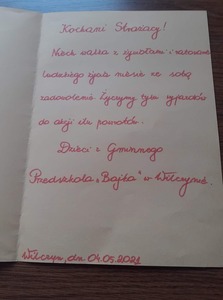 Kochani Strażacy!
Niech walka z żywiołami i ratowanie
ludzkiego życia niesie ze sobą
zadowolenie. Życzymy tylu wyjazdów
do akcji ilu powrotów.
Dzieci z Gminnego
Przedszkola „Bajka” w Wilczynie.
Wilczyn, dn. 04.05.2021